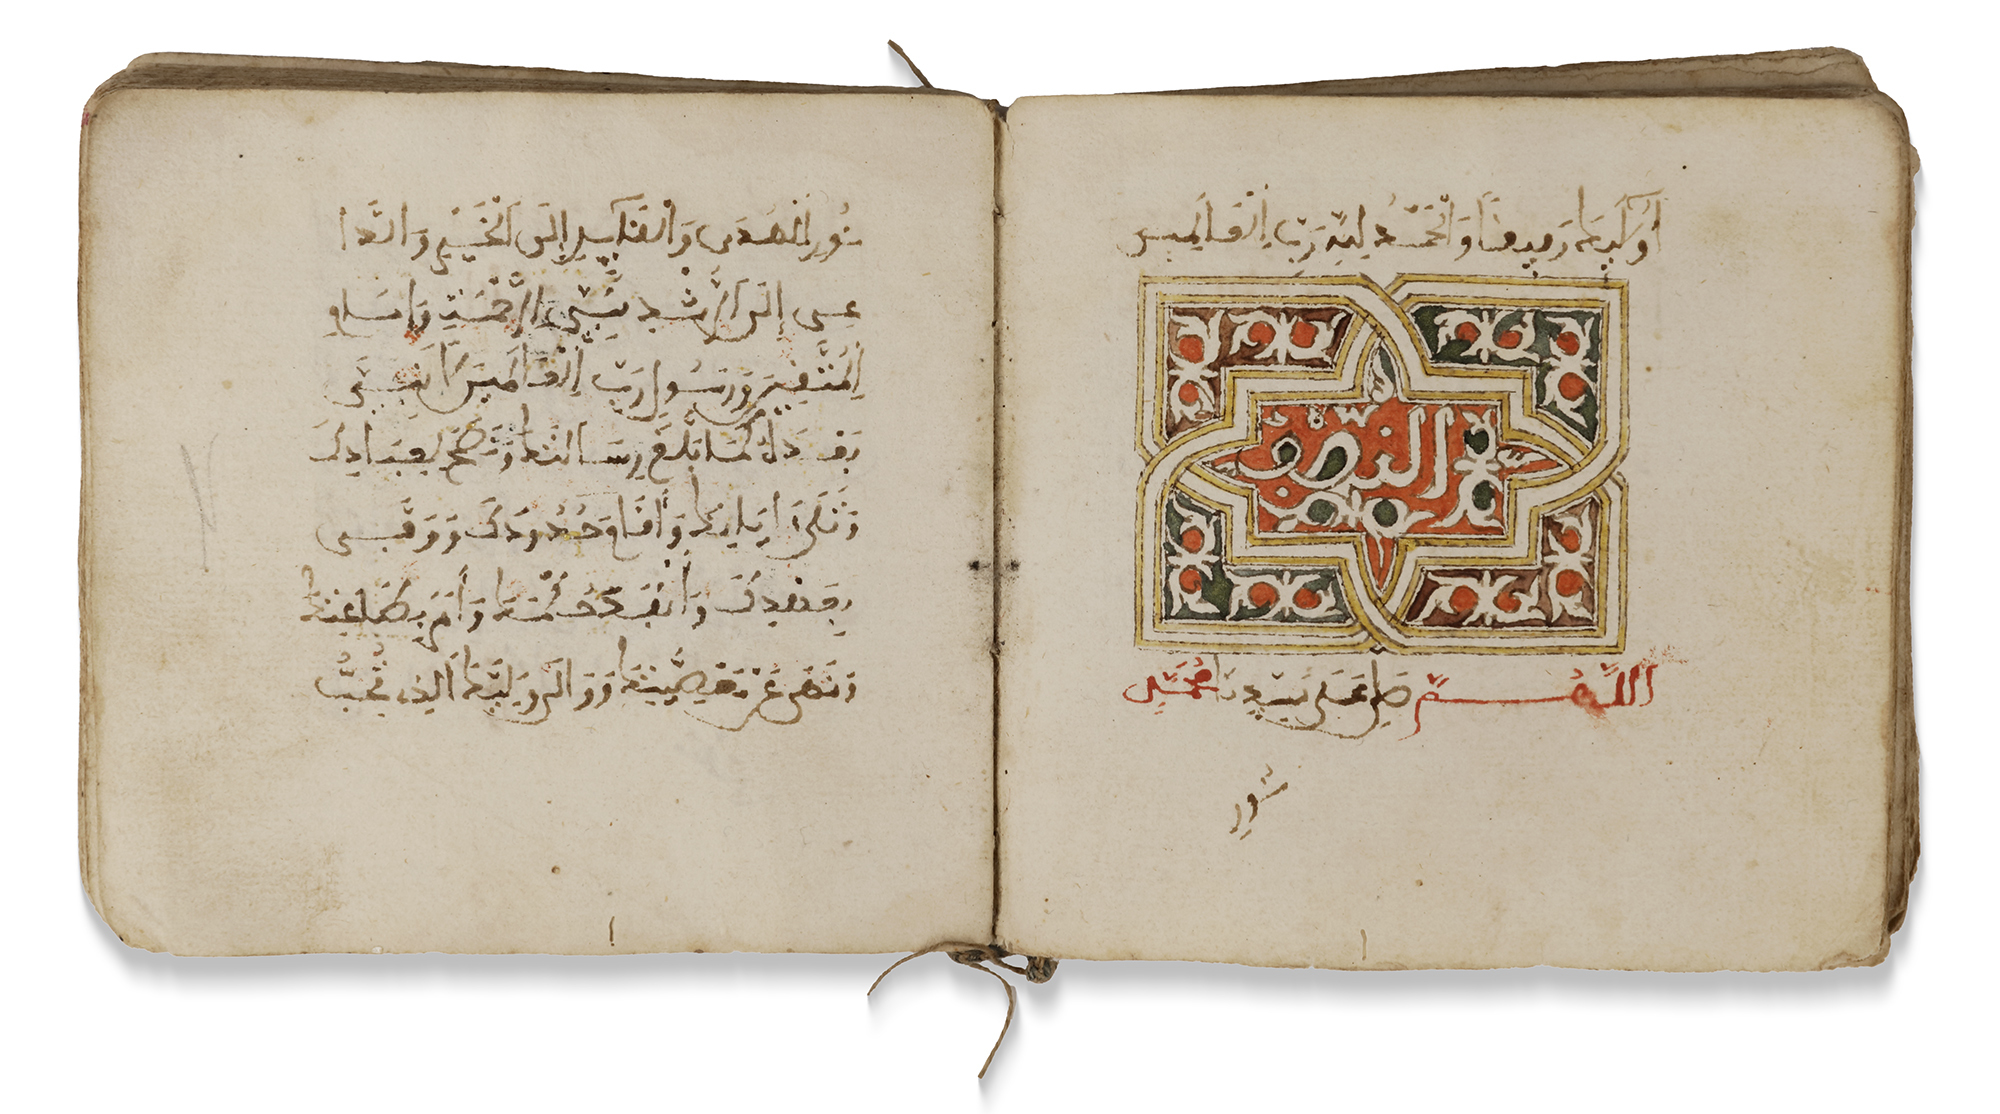 أُولَئِكَ رَفِيقًا وَالْحَمْدُ لِلهِ رَبِّ الْعَالَمِينَ
النصف
اللَّهُمَّ صَلِّ عَلَى سَيِّدِنَا مُحَمَّدٍ
نُورِ
نُورِ الْهُدَى وَالْقَائِدِ إِلَى الْخَيْرِ وَالدَّا
عِي إِلَى الرُّشْدِ نَبِيِّ الرَّحْمَةِ وَإِمَامِ
الْمُتَّقِينَ وَرَسُولِ رَبِّ الْعَالَمِينَ لَا نَبِيَّ
بَعْدَهُ كَمَا بَلَّغَ رِسَالَتَكَ وَنَصَحَ لِعِبَادِكَ
وَتَلَى ءَايَاتِكَ وَأَقَامَ حُدُودَكَ وَوَفَّى
بِعَهْدِكَ وَأَنْفَذَ حُكْمَكَ وَأَمَرَ بِطَاعَتِكَ
وَنَهَى عَنْ مَعْصِيَتِكَ وَوَالَى وَلِيَّكَ الَّذِي تُحِبُّ